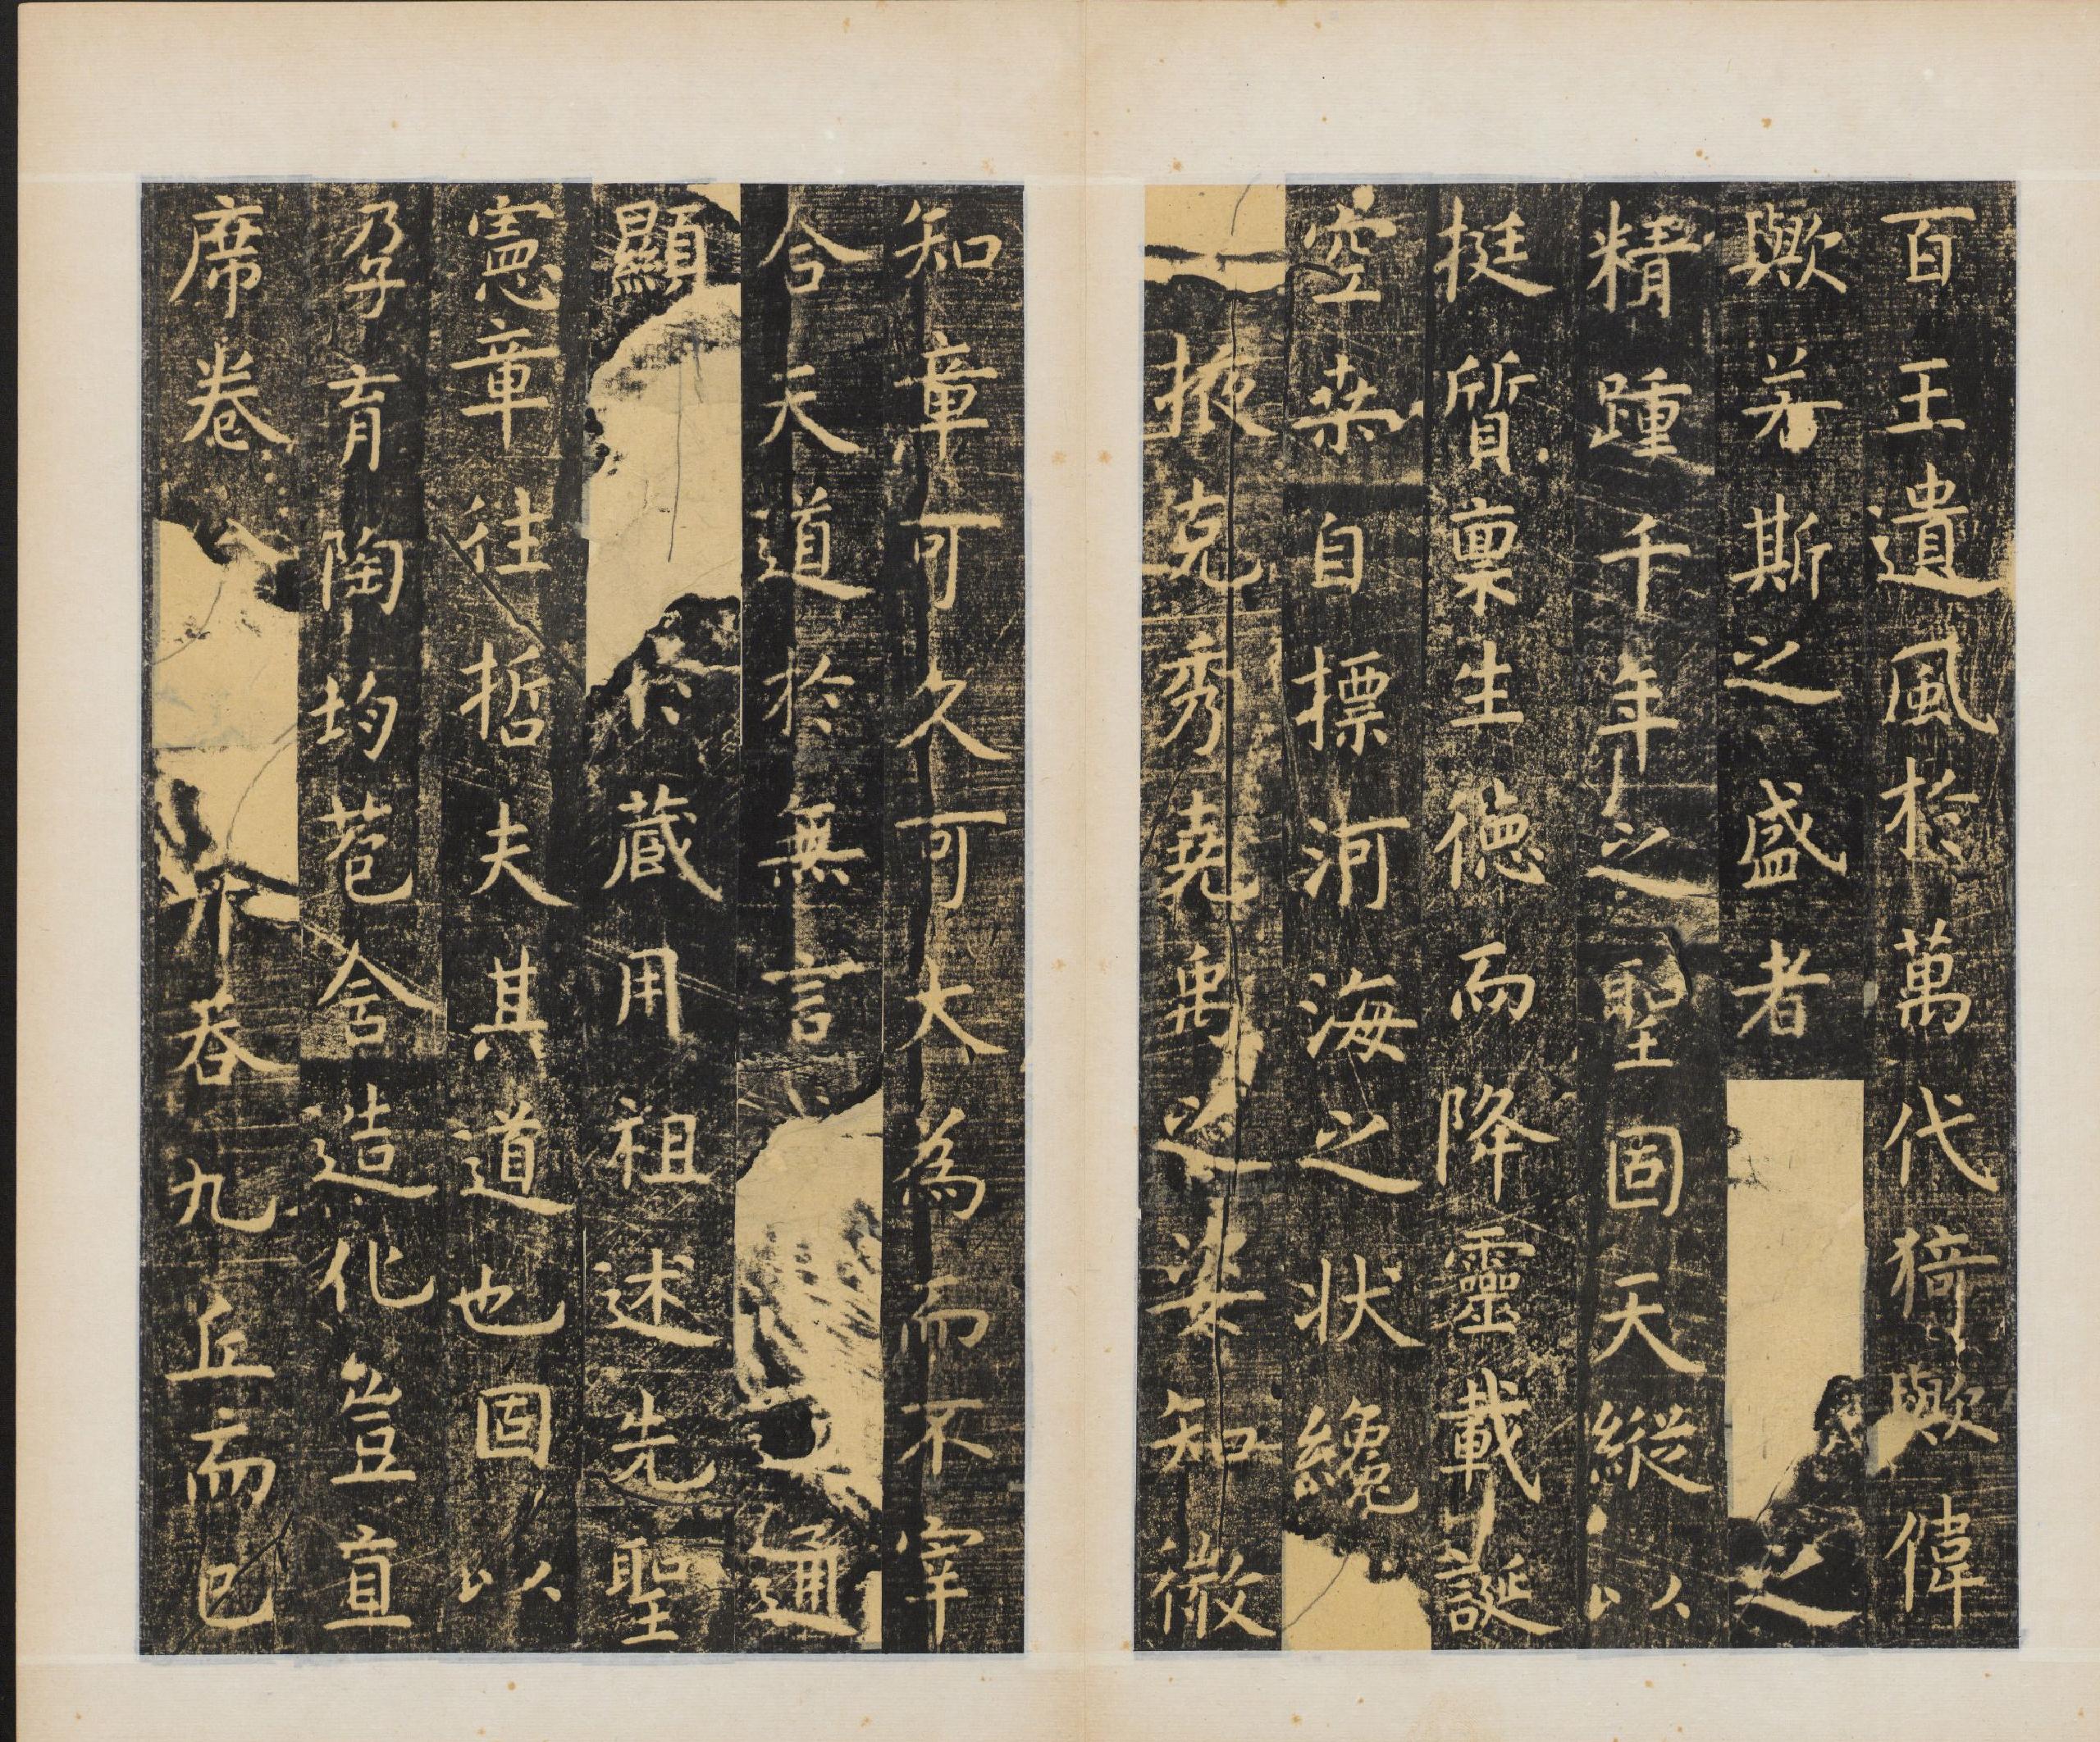 百王遺風於萬代猗歟偉
歟若斯之盛者之
精踵千年之聖固天縱以
挺質稟生德而降靈載誕
空桑自標河海之狀纔
掖克秀堯禹之姿知微
知章可久可大為而不宰
合天道於無言通
顯於藏用祖述先聖
憲章往哲夫其道也固以
孕育陶均苞含造化豈直
席卷八并吞九丘而已